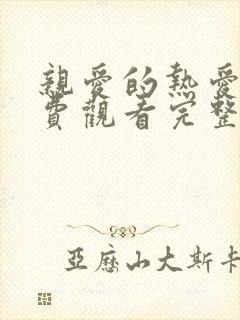 親愛的熱愛
費觀看完整
亞歷山大斯卡